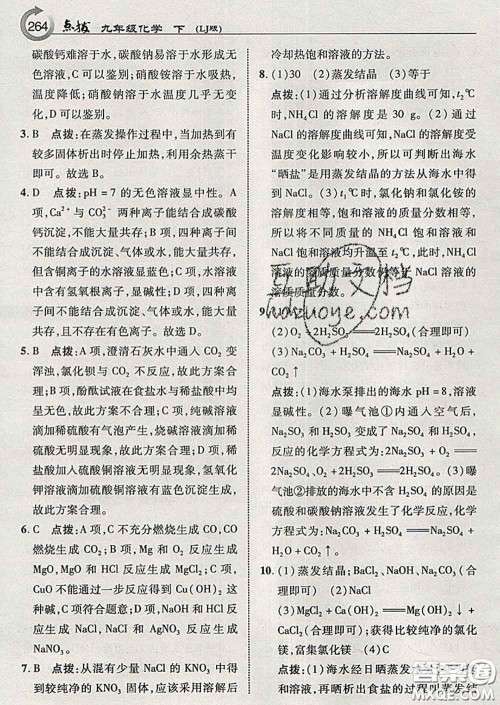 264 点拨 九年级化学 下 (LJ版)
碳酸钙难溶于水,碳酸钠易溶于水形成无
色溶液,可以鉴别;硝酸铵溶于水吸热,
温度降低;硝酸钠溶于水温度几乎无变
化,D 可以鉴别。
3. B 点拨:在蒸发操作过程中,当加热到有
较多固体析出时停止加热,利用余热蒸干
即可。故选 B。
4. D 点拨:pH = 7 的无色溶液显中性。A
项,Ca²⁺与 CO₃²⁻ 两种离子能结合成碳酸
钙沉淀,不能大量共存,B 项,四种离子间
不能结合成沉淀、气体或水,能大量共存,
但含铜离子的水溶液显蓝色;C 项,水溶液
中含有氢氧根离子,显碱性;D 项,四种离
子间不能结合成沉淀、气体或水,能大量
共存,且不存在有色离子。故选 D。
5. B 点拨:A 项,澄清石灰水中通入 CO₂ 变
浑浊,氯化钡与 CO₂ 不反应,故此方案合
理;B 项,酚酞试液在食盐水与稀盐酸中均
呈无色,故此方案不合理;C 项,纯碱溶液
滴加稀硫酸有气泡产生,烧碱溶液滴加稀
硫酸无明显现象,故此方案合理;D 项,硫
酸钾加入硫酸铜溶液无明显现象,氢氧化
钾溶液滴加硫酸铜溶液有蓝色沉淀生成,
故此方案合理。
6. C 点拨:A 项,C 不充分燃烧生成 CO,CO
燃烧生成 CO₂;B 项,Mg 和 O₂ 反应生成
MgO,MgO 和 HCl 反应生成 MgCl₂;C 项,
CuO 不能通过一步反应得到 Cu(OH)₂,这
种碱,不符合题意;D 项,Na₂CO₃ 与 HCl 反
应生成 NaCl,NaCl 与 AgNO₃ 反应生成
NaNO₃。
7. B 点拨:从混有少量 NaCl 的 KNO₃ 中得
到较纯净的 KNO₃ 固体,应该采用溶解后
冷却热饱和溶液的方法。
8. (1)30 (2)蒸发结晶 (3)等于
点拨:(1)通过分析溶解度曲线可知,t₂℃
时,NH₄Cl 的溶解度是 30 g。(2)通过分析
NaCl 的溶解度曲线可知,NaCl 的溶解度受
温度变化影响较小,所以可判断出海水
“晒盐”是用蒸发结晶的方法从海水中得
到的。(3)t₁℃时,氯化钠和氯化铵的溶解
度相等,饱和溶液的质量分数相等,
所以将不同质量的 NH₄Cl 饱和溶液和 NaCl
饱和溶液均升温至 t₂℃时,NH₄Cl
溶液的溶质质量分数等于 NaCl 溶液的
溶质质量分数。
(2)O₂ + 2H₂SO₃ ══ 2H₂SO₄(合理即可)
(3)Na₂CO₃ + H₂SO₄ ══ Na₂SO₄ + H₂O +
CO₂↑ (4)
点拨:(1)海水泵排出的海水 pH = 8,溶液
显碱性。(2)曝气池①内通入空气后,
Na₂SO₃ 和 H₂SO₃ 变成了 Na₂SO₄ 和 H₂SO₄,
反应的化学方程式为:2Na₂SO₃ + O₂ ══
2Na₂SO₄、2H₂SO₃ + O₂ ══ 2H₂SO₄。(3)
曝气池②排放的海水中含有的溶质能与
硫酸反应生成硫酸钠和二氧化碳,化学方
程式为:Na₂CO₃ + H₂SO₄ ══ Na₂SO₄ +
H₂O + CO₂↑。
10. (1)蒸发结晶;BaCl₂、NaOH、Na₂CO₃(合
理即可) (2)
(3)MgCl₂ + Ca(OH)₂ ══ Mg(OH)₂↓ +
CaCl₂(合理即可);获得较纯净的氯化
镁,富集氯化镁 (4)
点拨:(1)海水经日晒蒸发结晶得到
溶液,再晒析出食盐的过程叫蒸发结
互助文档
hdzuoye.com
答案圈
MXQE.COM